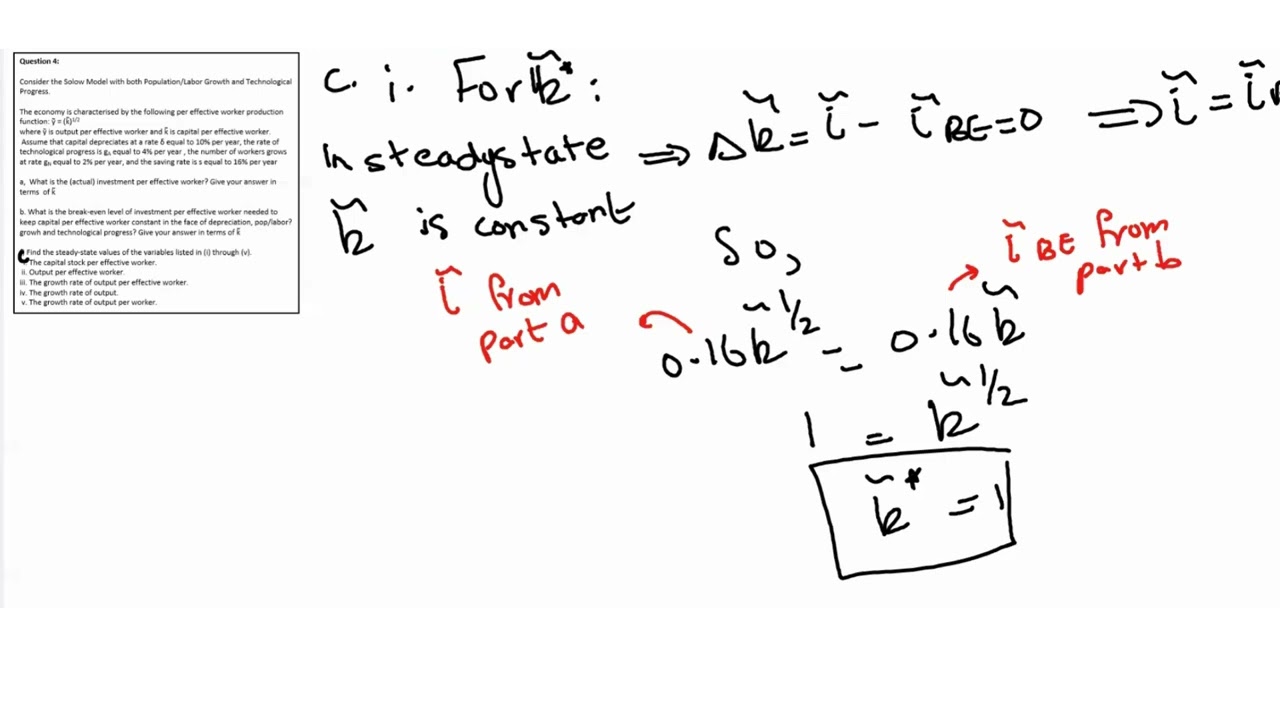 Question 4:
Consider the Solow Model with both Population/Labor Growth and Technological
Progress.
The economy is characterised by the following per effective worker production
function: ỹ = (k̃)^1/2
where ỹ is output per effective worker and k̃ is capital per effective worker.
Assume that capital depreciates at a rate δ equal to 10% per year, the rate of
technological progress is gₐ equal to 4% per year , the number of workers grows
at rate gₙ equal to 2% per year, and the saving rate is s equal to 16% per year
a, What is the (actual) investment per effective worker? Give your answer in
terms of k̃
b. What is the break-even level of investment per effective worker needed to
keep capital per effective worker constant in the face of depreciation, pop/labor?
growh and technological progress? Give your answer in terms of k̃
Find the steady-state values of the variables listed in (i) through (v).
The capital stock per effective worker.
ii. Output per effective worker.
iii. The growth rate of output per effective worker.
iv. The growth rate of output.
v. The growth rate of output per worker.
c. i. For k̃* :
In steadystate ⇒ Δk̃ = ĩ - ĩ BE = 0 ⇒ ĩ = ĩ
k̃ is constant
So,
ĩ from
part a
ĩ BE from
part b
0.16k̃^1/2 = 0.16k̃
1 = k̃^1/2
k̃* = 1